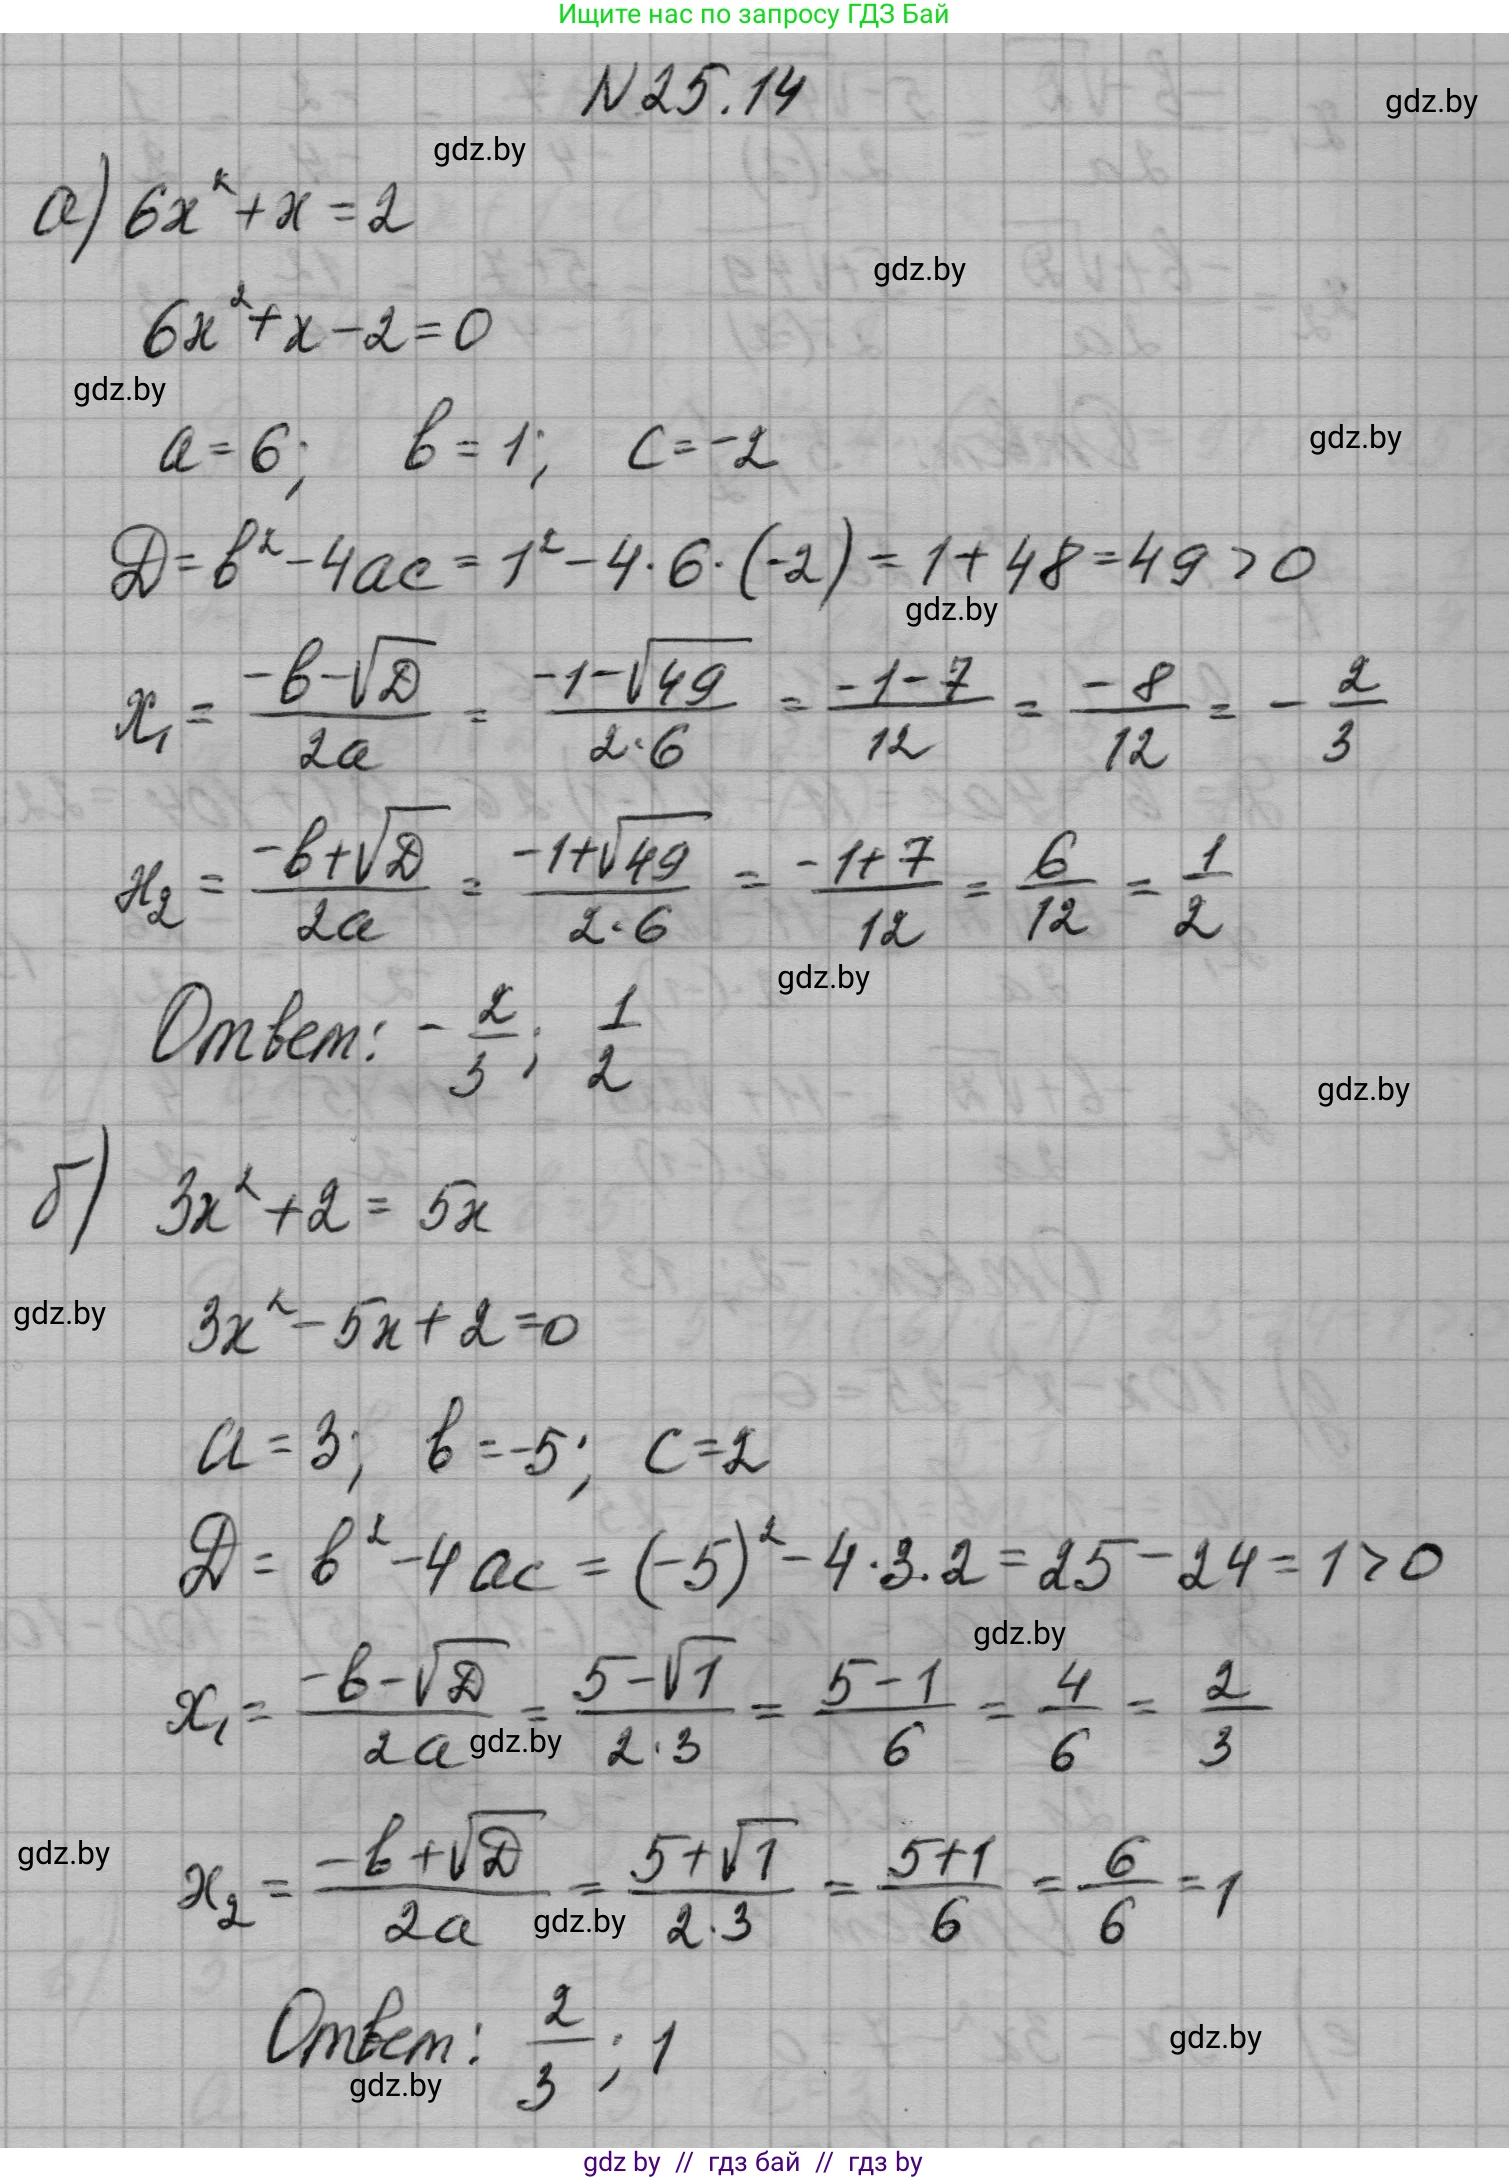 Ищите нас по запросу ГДЗ Бай
N 25.14
gdz.by
gdz.by
а) 6x² + x = 2
gdz.by
6x² + x - 2 = 0
gdz.by
a = 6; b = 1; c = -2
gdz.by
D = b² - 4ac = 1² - 4·6·(-2) = 1 + 48 = 49 > 0
gdz.by
x₁ = (-b-√D)/(2a) = (-1-√49)/(2·6) = (-1-7)/12 = (-8)/12 = -2/3
x₂ = (-b+√D)/(2a) = (-1+√49)/(2·6) = (-1+7)/12 = 6/12 = 1/2
gdz.by
Ответ: -2/3; 1/2
gdz.by
б) 3x² + 2 = 5x
gdz.by
3x² - 5x + 2 = 0
a = 3; b = -5; c = 2
D = b² - 4ac = (-5)² - 4·3·2 = 25 - 24 = 1 > 0
gdz.by
x₁ = (-b-√D)/(2a) = (5-√1)/(2·3) = (5-1)/6 = 4/6 = 2/3
gdz.by
gdz.by
x₂ = (-b+√D)/(2a) = (5+√1)/(2·3) = (5+1)/6 = 6/6 = 1
gdz.by
Ответ: 2/3; 1
gdz.by
gdz.by
gdz by // гдз бай // гдз by